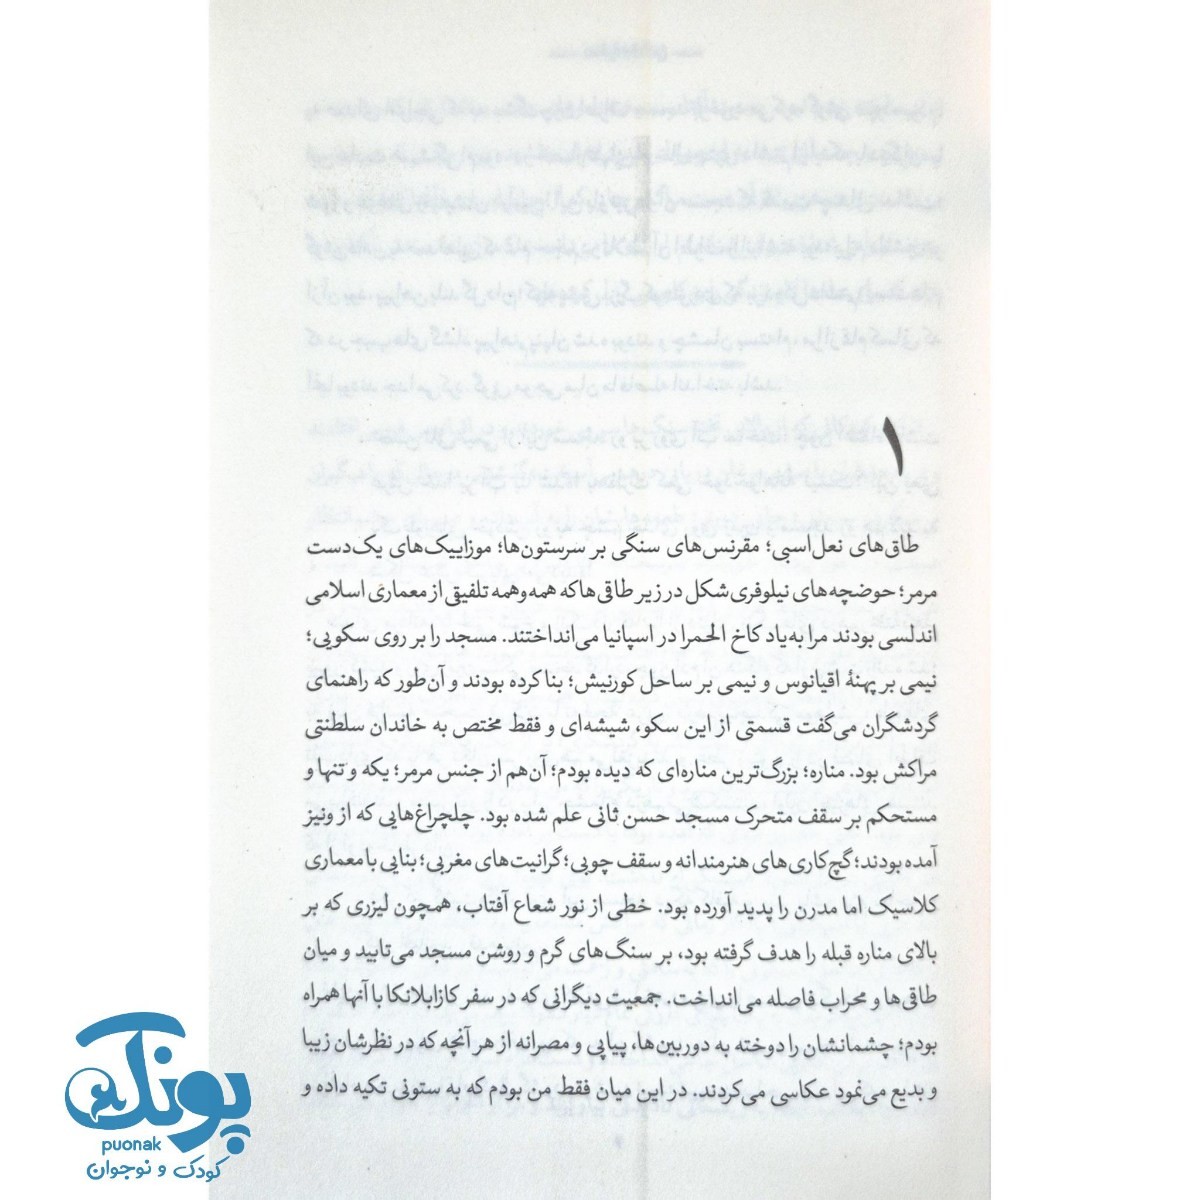 ۱
طاق‌های نعل‌اسبی؛ مقرنس‌های سنگی بر سرستون‌ها؛ موزاییک‌های یک‌دست
مرمر؛ حوضچه‌های نیلوفری‌شکل در زیر طاقی‌ها که همه‌و‌همه تلفیقی از معماری اسلامی
اندلسی بودند مرا به‌یاد کاخ الحمرا در اسپانیا می‌انداختند. مسجد را بر روی سکویی؛
نیمی بر پهنهٔ اقیانوس و نیمی بر ساحل کورنیش؛ بنا کرده بودند و آن‌طور که راهنمای
گردشگران می‌گفت قسمتی از این سکو، شیشه‌ای و فقط مختص به خاندان سلطنتی
مراکش بود. مناره؛ بزرگ‌ترین مناره‌ای که دیده بودم؛ آن‌هم از جنس مرمر؛ یکه و تنها و
مستحکم بر سقف متحرک مسجد حسن ثانی علم شده بود. چلچراغ‌هایی که از ونیز
آمده بودند؛ گچ‌کاری‌های هنرمندانه و سقف چوبی؛ گرانیت‌های مغربی؛ بنایی با معماری
کلاسیک اما مدرن را پدید آورده بود. خطی از نور شعاع آفتاب، همچون لیزری که بر
بالای مناره قبله را هدف گرفته بود، بر سنگ‌های گرم و روشن مسجد می‌تابید و میان
طاقی‌ها و محراب فاصله می‌انداخت. جمعیت دیگرانی که در سفر کازابلانکا با آنها همراه
بودم؛ چشمانشان را دوخته به دوربین‌ها، پیاپی و مصرانه از هر آنچه که در نظرشان زیبا
و بدیع می‌نمود عکاسی می‌کردند. در این میان فقط من بودم که به ستونی تکیه داده و
پونک
puonak
کودک و نوجوان